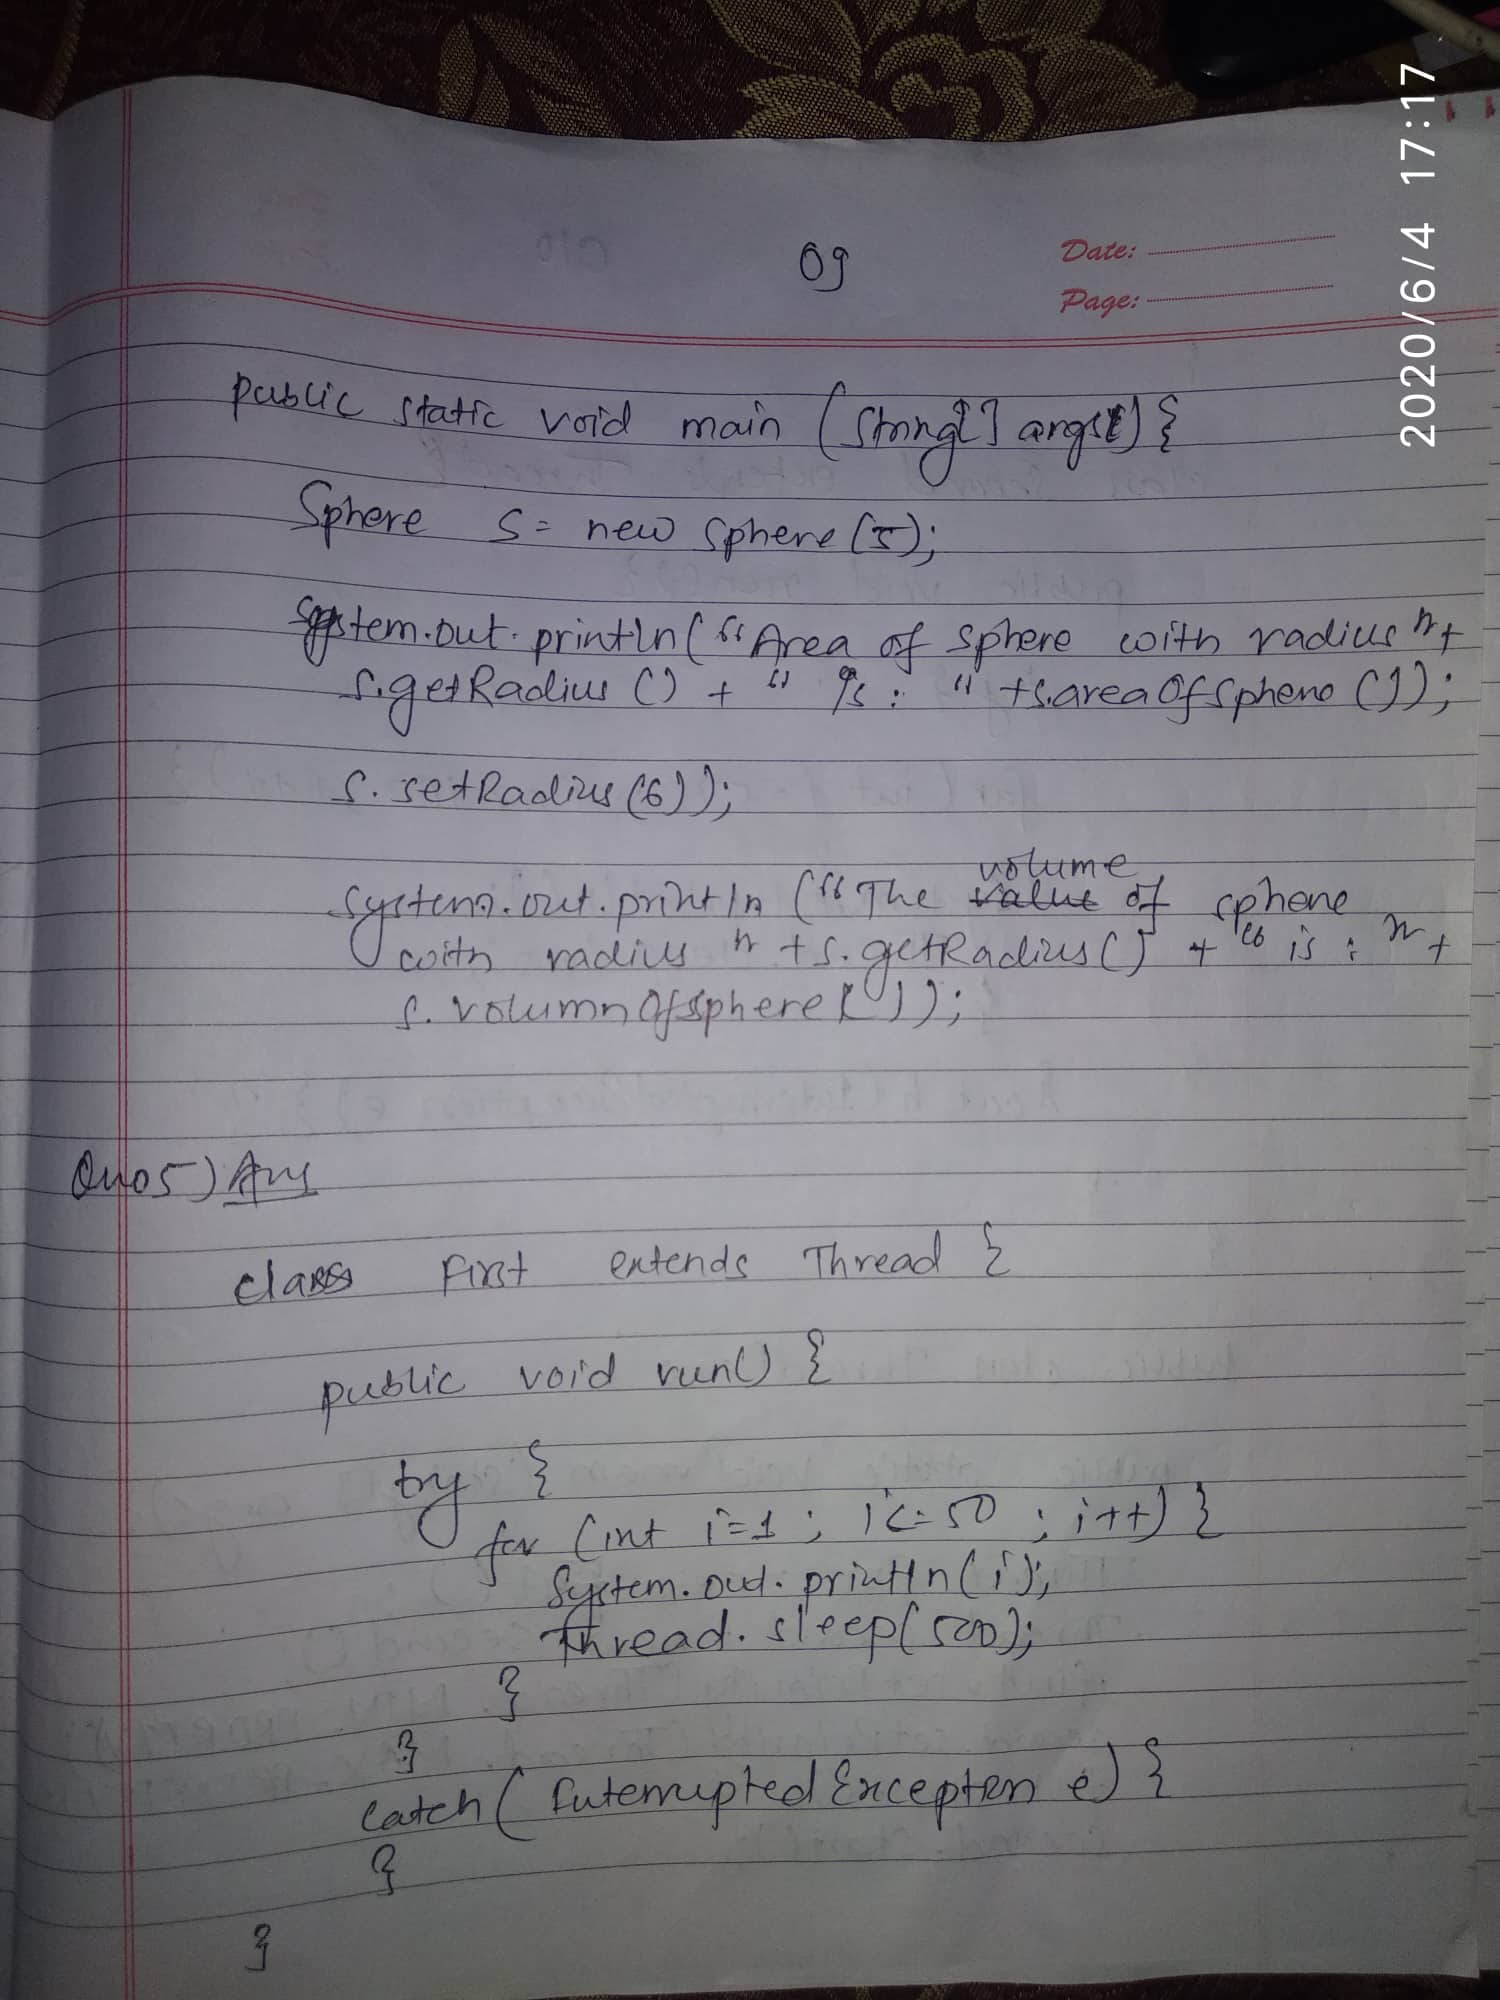 2020/6/4 17:17
09
Date:
Page:
public static void main (String[] args) {
Sphere s = new sphere (5);
System.out.println("Area of sphere with radius "+
s.getRadius () + " is : " +s.areaOfsphere ());
s.setRadius (6));
System.out.println ("The volume of sphere
with radius " +s.getRadius () + " is : " +
s.volumnOfsphere ());
Quo5) Ans
class First extends Thread {
public void run() {
try {
for (int i=1 ; i<=50 ; i++) {
System.out.println(i);
Thread.sleep(500);
}
}
catch ( InterruptedException e) {
}
}